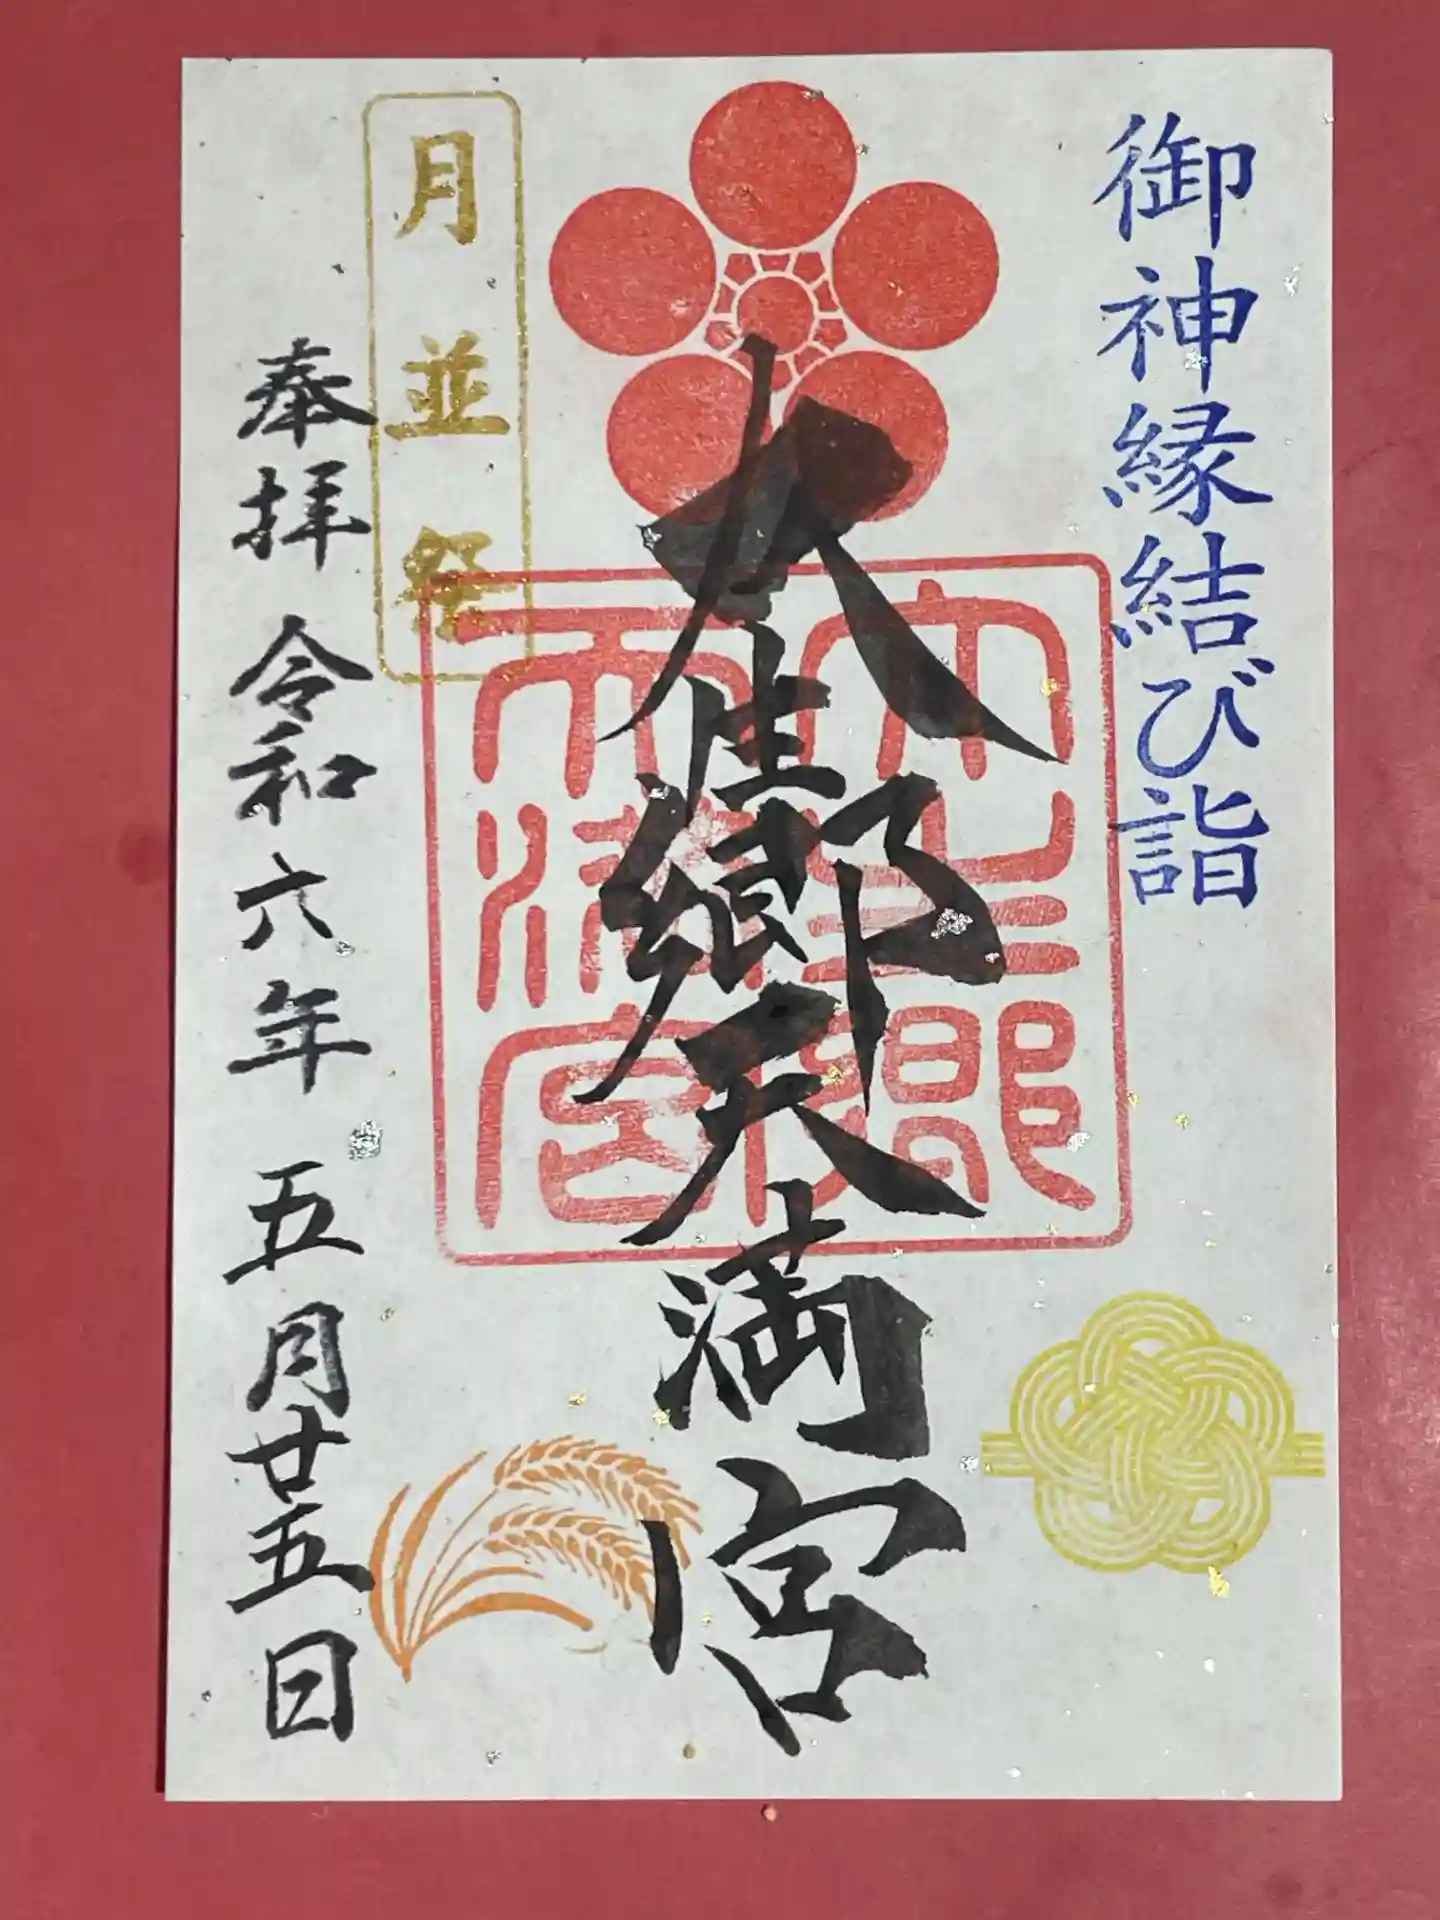 御神縁結び詣
大生郷天満宮
大生郷天満宮
月並祭
奉拝 令和六年 五月廿五日